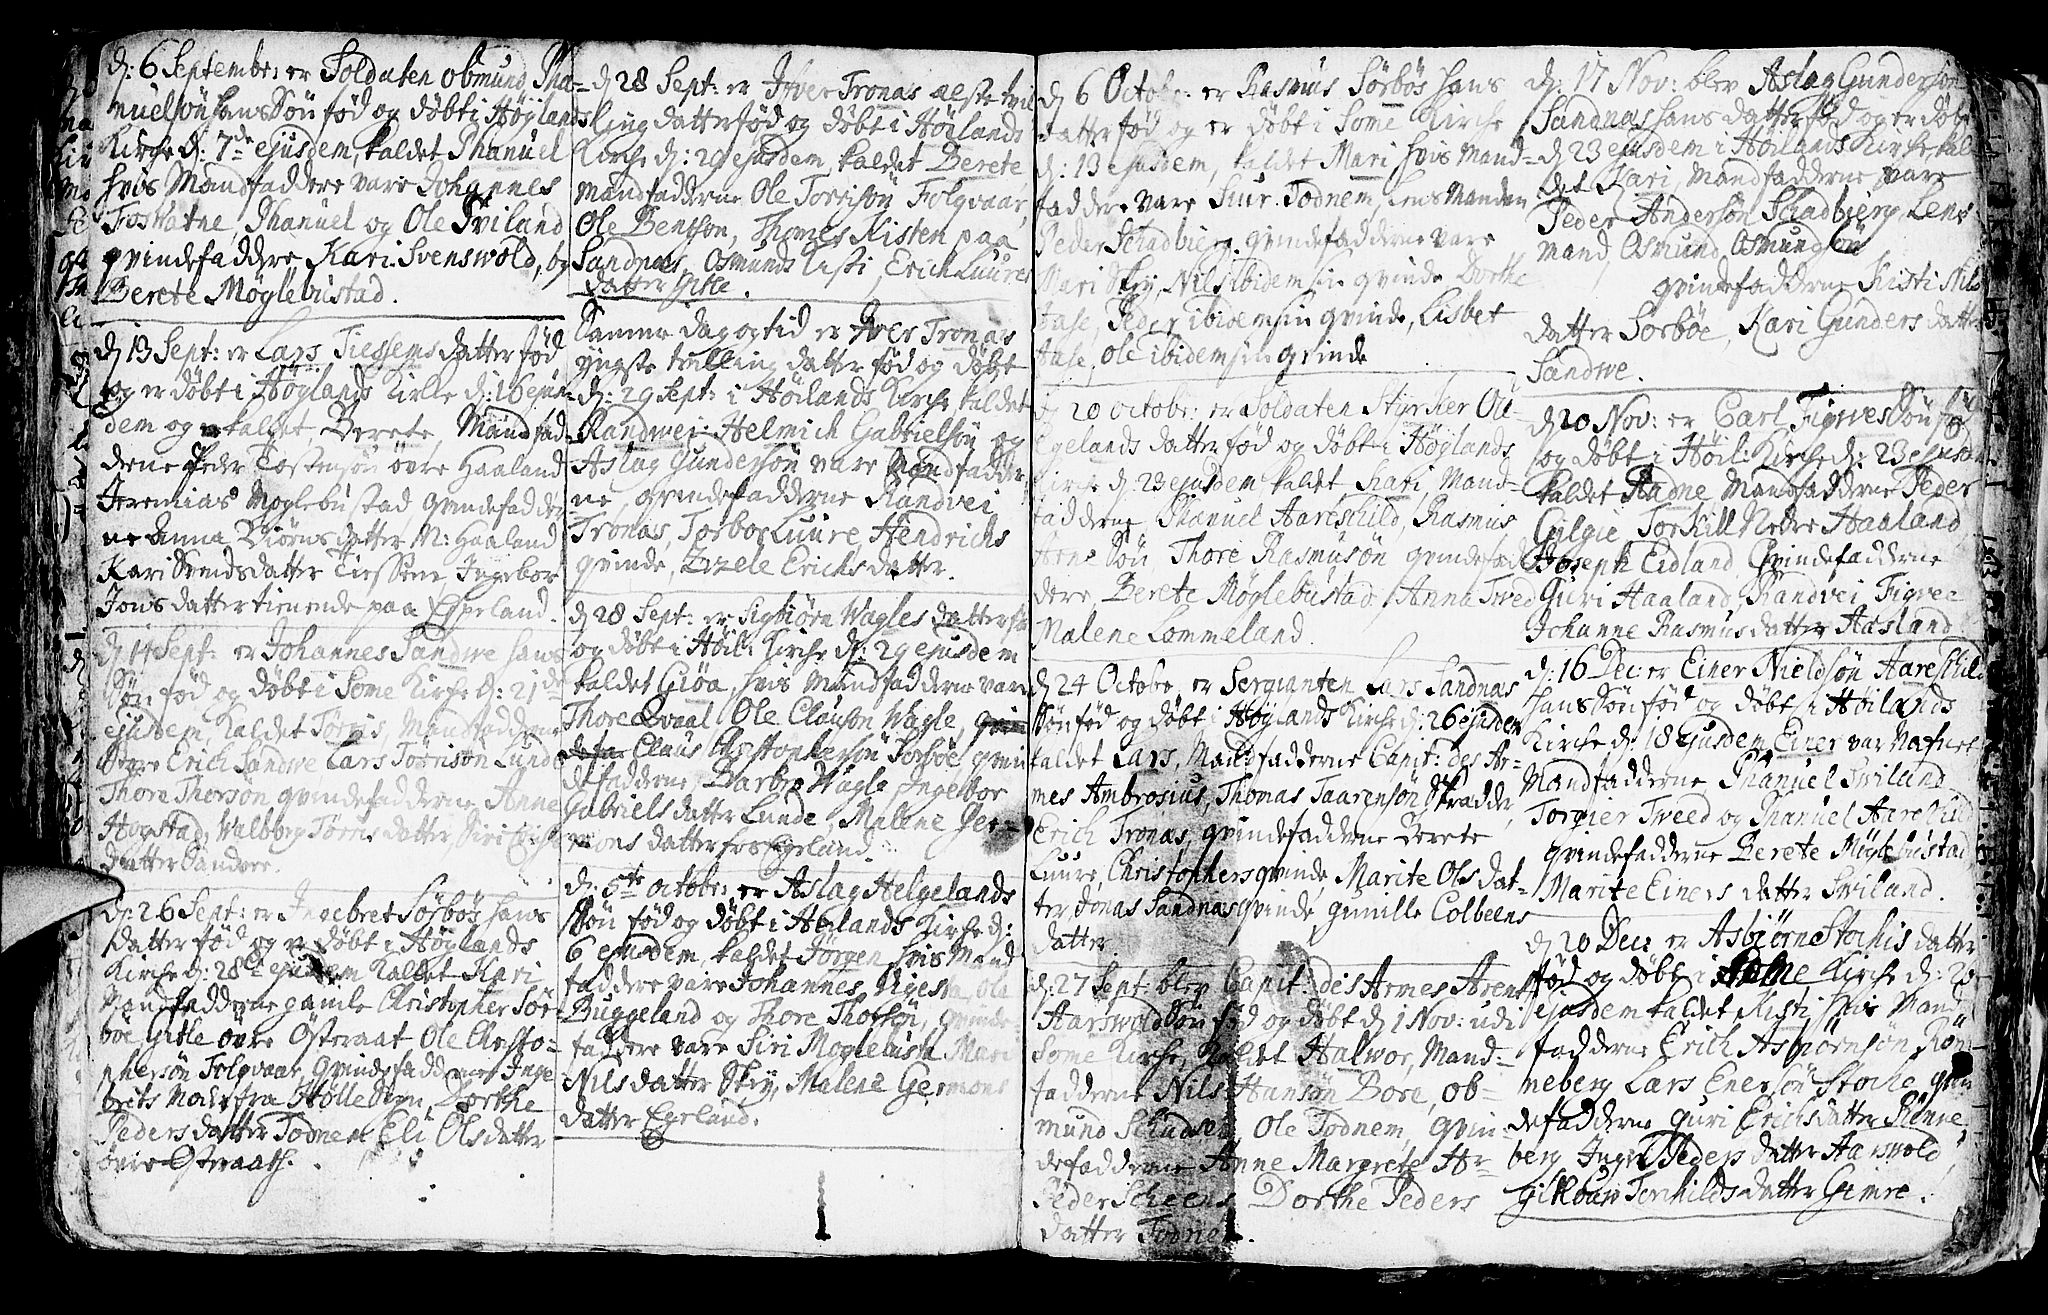 d: 6 September er Soldaten Obmund Pha-
nuelsøn hans Søn fød og døbt i Höjlands
Kirche d: 7de ejusdem, kaldet Phanuel
hvis Mandfaddere vare Johannes
Foswatne, Phanuel og Ole Sviland
qvindefaddere Kari Svenswold, og
Berete Møglebustad.
d 13 Sept: er Lars Tiessems datter fød
og er døbt i Höglands Kirke d: 16 ejus-
dem og kaldet Berete, Mandfad-
derne Peder Tostensøn øvre Haaland
Jeremias Moglebustad, qvindefadder-
ne Anna Biørns datter N: Haaland
Kari Svendsdatter Tiessem, Ingebor
Jons datter tienende paa Espeland.
d 14 Sept: er Johannes Sandwe hans
Søn fød og døbt i Some Kirke d: 21de
ejusdem, kaldet Tørris, Mandfadderne
vare Erich Sandwe Lars Tørrisøn Lunde
Thore Thorsøn qvindefadderne, Anne
Hogstad, Walberg Tørris datter, Siri Erichs
datter Sandwe.
d: 26 Sept: er Ingebret Sörbös hans
datter fød og er døbt i Höglands
Kirche d: 28de ejusdem kaldet Kari
Mandfadderne gamle Christopher Sör-
boe Gitle övre Österaat Ole Christo-
phersön Folgvaar, qvindefadderne Inge-
brets Moder fra Holle Sogn, Dorthe
Peders datter Todnem Eli Ols datter
övre Ostraath.
d 28 Sept: er Ifver Tronas ælste tvil
ling datter fød og døbt i Höilands
Kirche d: 29 ejusdem, kaldet Berete
mandfadderne Ole Torrisøn Folgvaar,
Ole Bentson, Thomes Kisten paa
Sandnæs, Osmunds Kisti, Erich Luures
datter Gitle.
Samme dag og tid er Iver Tronas
yngste tvilling datter fød og döbt
d: 29 Sept: i Höilands Kirche kaldet
Randwei: Helmich Gabrielsøn og
Aslag Gundersøn vare Mandfadder-
ne, qvindefadderne Randvei
Tronas, Torbor Luure, Hendrichs
qvinde, Zizele Erichs datter.
d 28 Sept: er Sigbiörn Wagles datter fø
og døbt i Höil: Kirche d: 29 ejusdem
kaldet Giøa, hvis Mandfadderne vare
Thore Qvaal Ole Clauson Wagle
Claus Christophersøn Sorboe, qvin
defadderne, Barbro Wagle, Ingebor
Gabriels datter Lunde, Malene Ger-
mons datter fos Egeland.
d: 5te octobr: er Aslag Helgelands
Søn fød og døbt i Höilands Kirche d:
6 ejusdem, kaldet Jörgen, hvis Mand
faddere vare Johannes Uigesta, Ole
Buggeland og Thore Thorsøn, qvinde-
faddere vare Siri Moglebust Mari
Nils datter Skey, Malene Germons
datter Egeland.
d 6 Octobr: er Rasmus Sörbös hans
datter fød og er døbt i Some Kirche
d: 13 ejusdem, kaldet Mari hvis Mand-
faddere vare Siur Todnem, Lens Manden
Peder Schadbierg. qvindefadderne vare
Mari Skey, Nils ibidem sin qvinde Dorthe
Aase, Peder ibidem sin qvinde, Lisbet
Aase, Ole ibidem sin qvinde
d 20 octobr: er Soldaten Styrcher Ou-
Egelands datter fød og døbt i Höglands
Kirche d: 23 ejusdem kaldet Kari, Mand-
fadderne, Phanuel Aareschild, Rasmus
Arne Søn, Thore Rasmusøn qvindefad-
dere, Berete Møglebustad, Anna Tved
Malene Lommeland.
d 24 Octobr er Sergianten Lars Sandnas
Søn fød og døbt i Höylands Kirche d: 26 ejusdem
kaldet Lars, Mandfadderne Capit: des Ar-
mes Ambrosius, Thomas Taarensøn Skradder,
Erich Tronas, qvindefadderne Berete
Luure, Christophers qvinde, Marite Ols dat-
ter Jonas Sandnas qvinde, gunille Colbeens
datter
d: 27 Sept: blev Capit: des Armes Arent
Aarswold Søn fød og døbt d 1 Nov: udi
Some Kirche, kaldet Halwor, Mand-
fadderne Nils Hansøn Bore, Ob-
mund Schadberg Ole Todnem, Qvin-
defadderne Anne Margrete Ar-
Peder Scheens Dorthe Peders
datter Todnem.
d: 17 Nov: blev Aslag Gundersøn
Sandnas hans datter fød og er døbt
d 23 ejusdem i Höilands Kirche, kal
det Kari, Mandfadderne vare
Peder Andersøn Schadbierg, Lens-
mand, Osmund Osmundsøn
qvindefadderne Kisti Nils
datter Sorboe, Kari Gunders datter
Sandwe.
d 20 Nov: er Carl Figves Søn fød
og døbt i Höil: Kirche d: 23 ejusdem
kaldet Radne Mandfadderne Peder
Gilgie Torkill Nedre Haaland
Joseph Eidland Qvindefadderne
Guri Haaland, Randvei Figvee
Johanne Rasmus datter Hasland
d: 16 Dec: er Einer Nieldsøn Aareskild
hans Søn fød og døbt i Höilands
Kirche d: 18 ejusdem Einer var Nafnet
Mandfadderne Phanuel Sviland
Torgier Tveed og Phanuel Aareskild
qvindefadderne Berete Möglebustad,
Marite Einers datter Sviland.
d 20 Dec: er Asbiørne Stochis datter
fød og døbt i Some Kirche d: 20
ejusdem kaldet Kisti hvis Mand
fadderne Erich Asbiørnsøn Rön-
neberg Lars Enersøn Stoche, qvin
defadderne Guri Erichsdatter Rönne
berg Inger Peders datter Aarswold,
Gitlaug Torchilds datter Gimre.